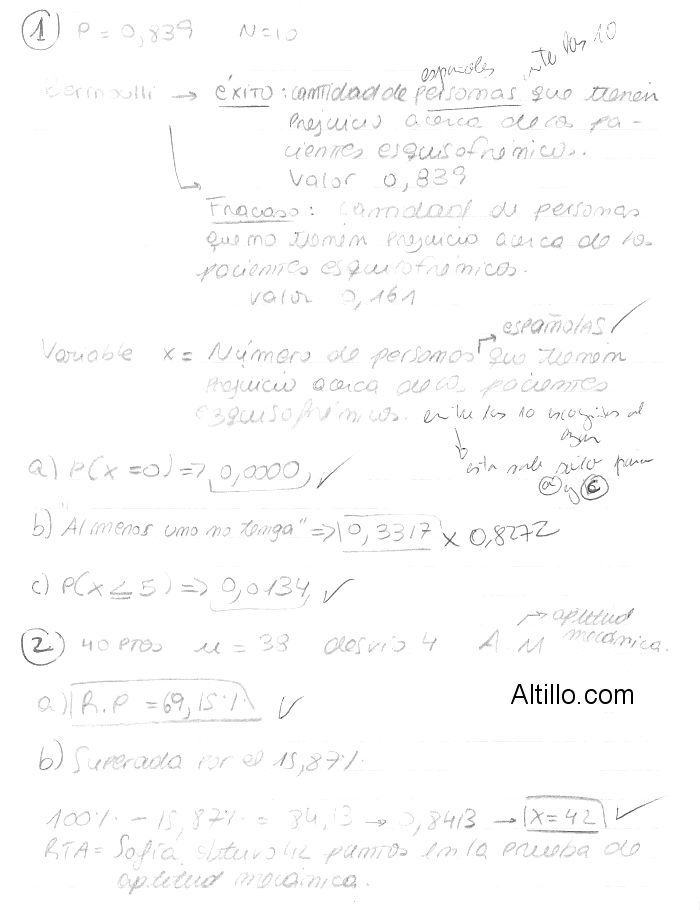 ① P = 0,839 N=10
españoles entre los 10
Bernoulli → éxito: cantidad de personas que tienen
prejuicio acerca de los pa-
cientes esquisofrénicos.
Valor 0,839
Fracaso: cantidad de personas
que no tienen prejuicio acerca de los
pacientes esquisofrénicos.
valor 0,161
→ españolas ✓
Variable x = Número de personas que tienen
prejuicio acerca de los pacientes
ezquisofrénicos. entre los 10 escogidos al
azar
a) P(x=0) => 0,0000 ✓
esta sale sólo para
ⓐ y ⓒ
b) "Al menos uno no tenga" => 0,3317 x 0,8272
c) P(x ≤ 5) => 0,0134 ✓
② 40 PTOS u = 38 desvío 4 A.M → aptitud
mecánica.
a) R.P = 69,15% ✓
Altillo.com
b) Superada por el 15,87%.
100% - 15,87% = 84,13 → 0,8413 → X=42 ✓
RTA = Sofía obtuvo 42 puntos en la prueba de
aptitud mecánica.